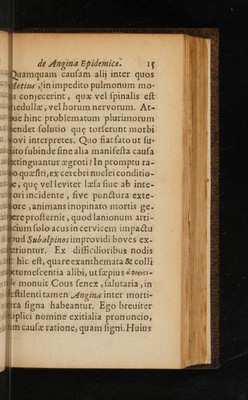 de Angina Epidemica. 15
Quamquam causam alij inter quos
Aetius, in impedito pulmonum mo-
conjecerint, quæ vel spinalis est
medullæ, vel horum nervorum. At-
que hinc problematum plurimorum
pendet solutio quę torserunt morbi
novi interpretes. Quo fiat fato ut su-
bito subinde sine alia manifesta causa
extinguantur ægroti? In promptu ra-
quæsiti, ex cerebri nuclei conditio-
quę vel leviter læsa sive ab inte-
riori incidente, sive punctura exte-
animans inopinato mortis ge-
prosternit, quod lanionum arti-
ficium solo acus in cervicem impactu
apud Subalpinos improvidi boves ex-
periuntur. Ex difficilioribus nodis
hic est, quare exanthemata & colli
extumescentia alibi, ut sæpius
monuit Cous senex, salutaria, in
pestilenti tamen Angina inter morti-
fera signa habeantur. Ego breviter
duplici nomine exitialia pronuncio,
causæ ratione, quam signi. Huius